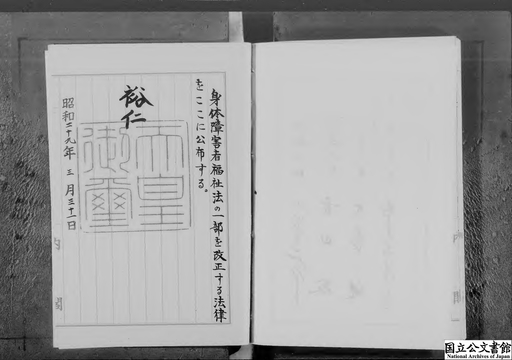 身体障害者福祉法の一部を改正する法律
をここに公布する。
裕仁
天皇
御璽
昭和二十九年三月三十一日
国立公文書館
National Archives of Japan